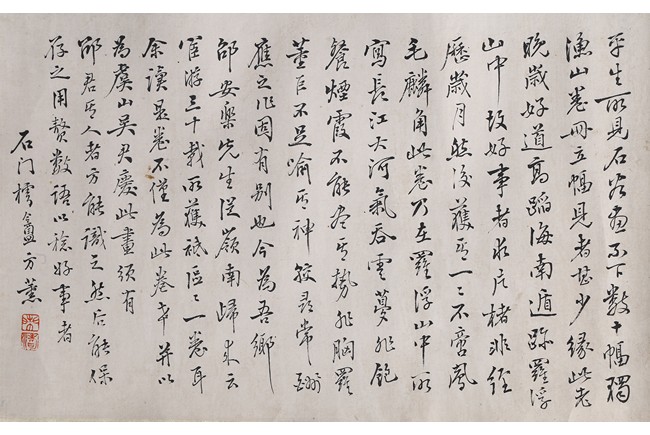 平生所見石谷畫不下數十幅獨
漁山卷冊立幅見者甚少緣此老
晚歲好道高蹈海南遁跡羅浮
山中故好事者求片楮非經
歷歲月然後獲其一二不啻鳳
毛麟角此卷乃在羅浮山中所
寫長江大河氣吞雲夢非飽
餐煙霞不能盡其勢非胸羅
董巨不足喻其神較尋常
應之作固有別也今為吾鄉
邵安樂先生從嶺南歸來云
宦游三十載所獲祇區區一卷耳
余讀是卷不僅為此卷幸并以
為虞山吳君慶此畫須有
邵君其人者方能識之然后能保
存之用贅數語以諗好事者
石门樗盦方薰